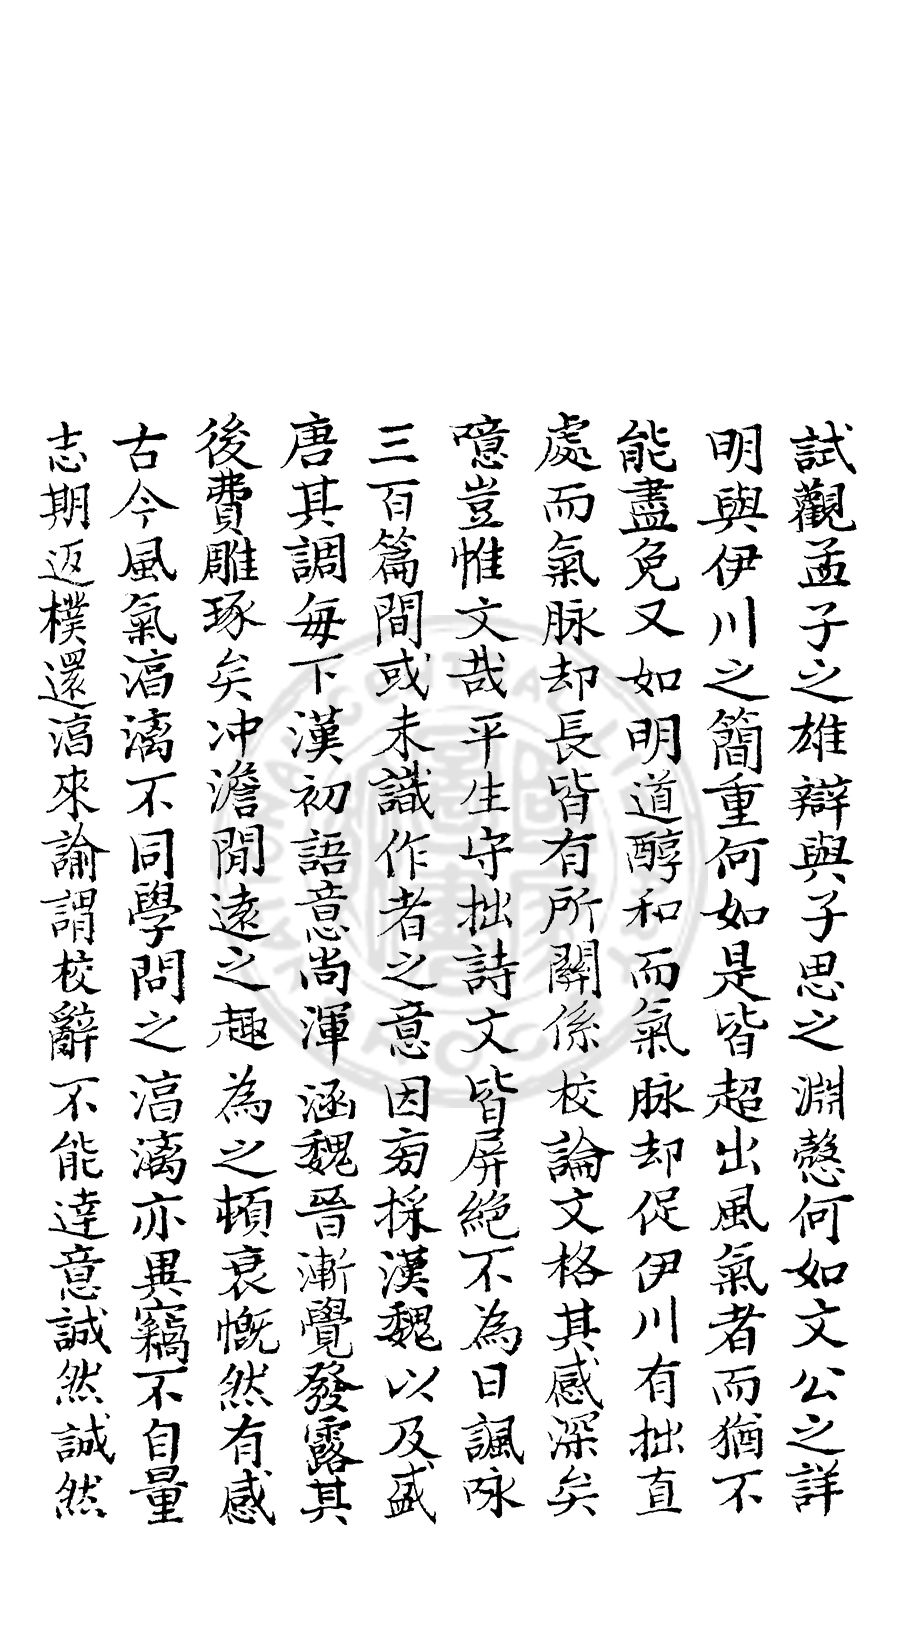 試觀孟子之雄辯與子思之淵慤何如文公之詳
明與伊川之簡重何如是皆超出風氣者而猶不
能盡免又如明道醇和而氣脉却促伊川有拙直
處而氣脉却長皆有所關係校論文格其感深矣
噫豈惟文哉平生守拙詩文皆屏絶不為日諷咏
三百篇間或未識作者之意因旁採漢魏以及盛
唐其調每下漢初語意尚渾涵魏晉漸覺發露其
後費雕琢矣冲澹閒遠之趣為之頓衰慨然有感
古今風氣滀漓不同學問之滀漓亦異竊不自量
志期返樸還滀來諭謂校辭不能達意誠然誠然